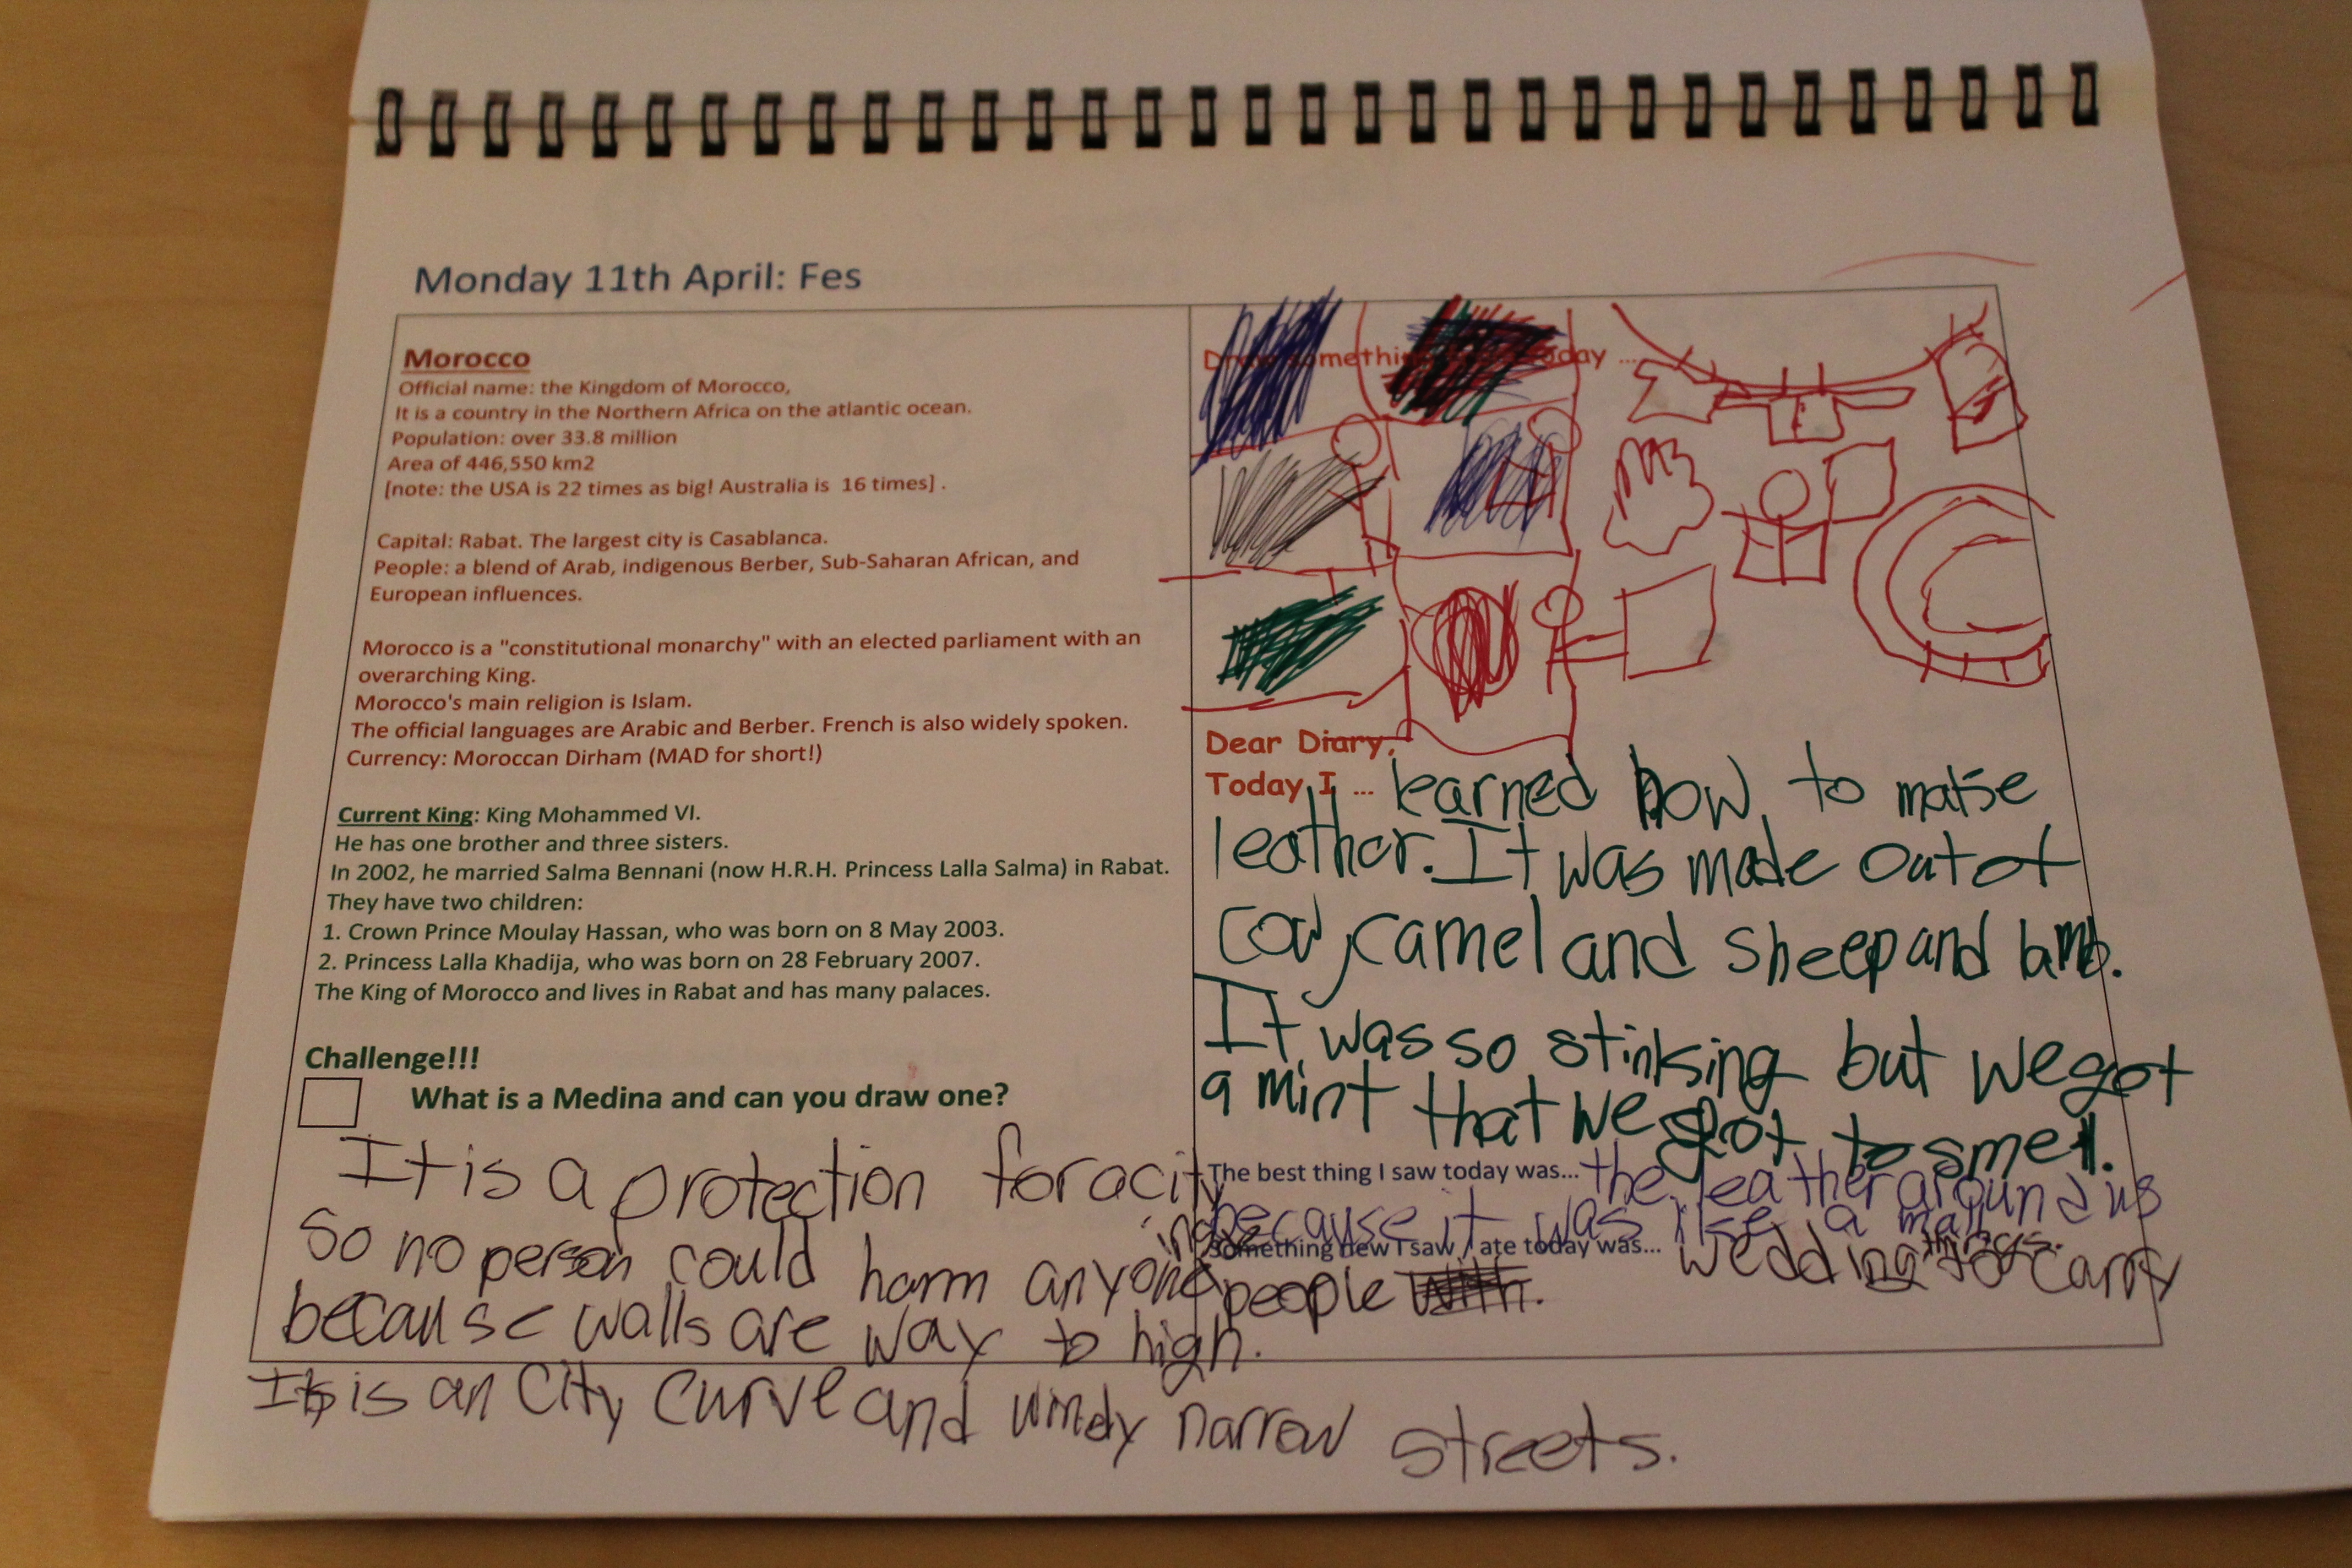 Monday 11th April: Fes
Morocco
Official name: the Kingdom of Morocco,
It is a country in the Northern Africa on the atlantic ocean.
Population: over 33.8 million
Area of 446,550 km2
[note: the USA is 22 times as big! Australia is 16 times] .
Capital: Rabat. The largest city is Casablanca.
People: a blend of Arab, indigenous Berber, Sub-Saharan African, and
European influences.
Morocco is a "constitutional monarchy" with an elected parliament with an
overarching King.
Morocco's main religion is Islam.
The official languages are Arabic and Berber. French is also widely spoken.
Currency: Moroccan Dirham (MAD for short!)
Current King: King Mohammed VI.
He has one brother and three sisters.
In 2002, he married Salma Bennani (now H.R.H. Princess Lalla Salma) in Rabat.
They have two children:
1. Crown Prince Moulay Hassan, who was born on 8 May 2003.
2. Princess Lalla Khadija, who was born on 28 February 2007.
The King of Morocco and lives in Rabat and has many palaces.
Challenge!!!
What is a Medina and can you draw one?
It is a protection for a city
so no person could harm anyone inside
because walls are way to high.
It is an city curve and windy narrow streets.
Draw something today ...
Dear Diary,
Today I ... learned how to make
leather. It was made out of
cow, camel and sheep and lamb.
It was so stinking but we got
a mint that we got to smell.
The best thing I saw today was... the leather around us
because it was like a mall
Something new I saw / ate today was... wedding things to carry
people with.